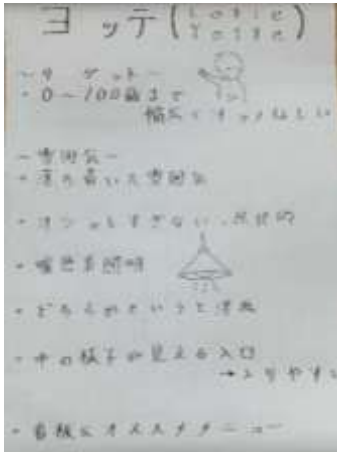 ヨッテ(
ーターゲットー
・0〜100歳まで
幅広く
ー雰囲気ー
・落ち着いた雰囲気
・オシャレすぎない、庶民的
・暖色系照明
・どちらかというと洋風
・中の様子が見える入口
→入りやすい
・看板にオススメメニュー